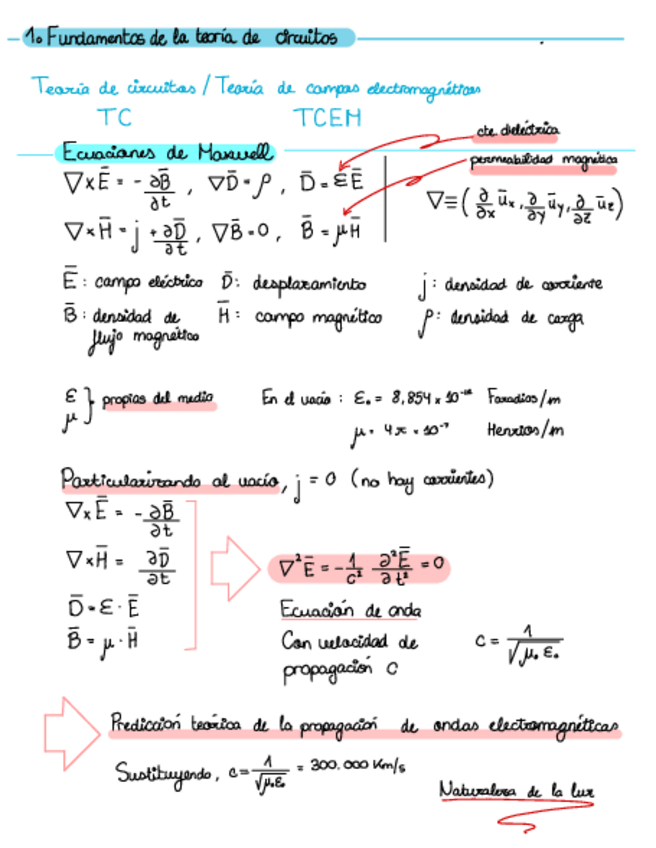 1. Fundamentos de la teoría de circuitos
Teoría de circuitos / Teoría de campos electromagnéticos
TC TCEM
cte. dieléctrica
Ecuaciones de Maxwell
permeabilidad magnética
∇×Ē = -∂B̄/∂t , ∇D̄ = ρ , D̄ = εĒ
∇ ≡ (∂/∂x ūx, ∂/∂y ūy, ∂/∂z ūz)
∇×H̄ = j + ∂D̄/∂t , ∇B̄ = 0 , B̄ = μH̄
Ē: campo eléctrico D̄: desplazamiento j: densidad de corriente
B̄: densidad de flujo magnético H̄: campo magnético ρ: densidad de carga
ε μ } propias del medio
En el vacío : ε₀ = 8,854 × 10⁻¹² Faradios/m
μ₀ = 4π × 10⁻⁷ Henrios/m
Particularizando al vacío, j = 0 (no hay corrientes)
∇×Ē = -∂B̄/∂t
∇×H̄ = ∂D̄/∂t
∇²Ē = -1/c² ∂²Ē/∂t² = 0
D̄ = ε · Ē
B̄ = μ · H̄
Ecuación de onda
Con velocidad de
propagación c
c = 1/√μ₀ε₀
Predicción teórica de la propagación de ondas electromagnéticas
Sustituyendo, c = 1/√μ₀ε₀ = 300.000 Km/s
Naturaleza de la luz